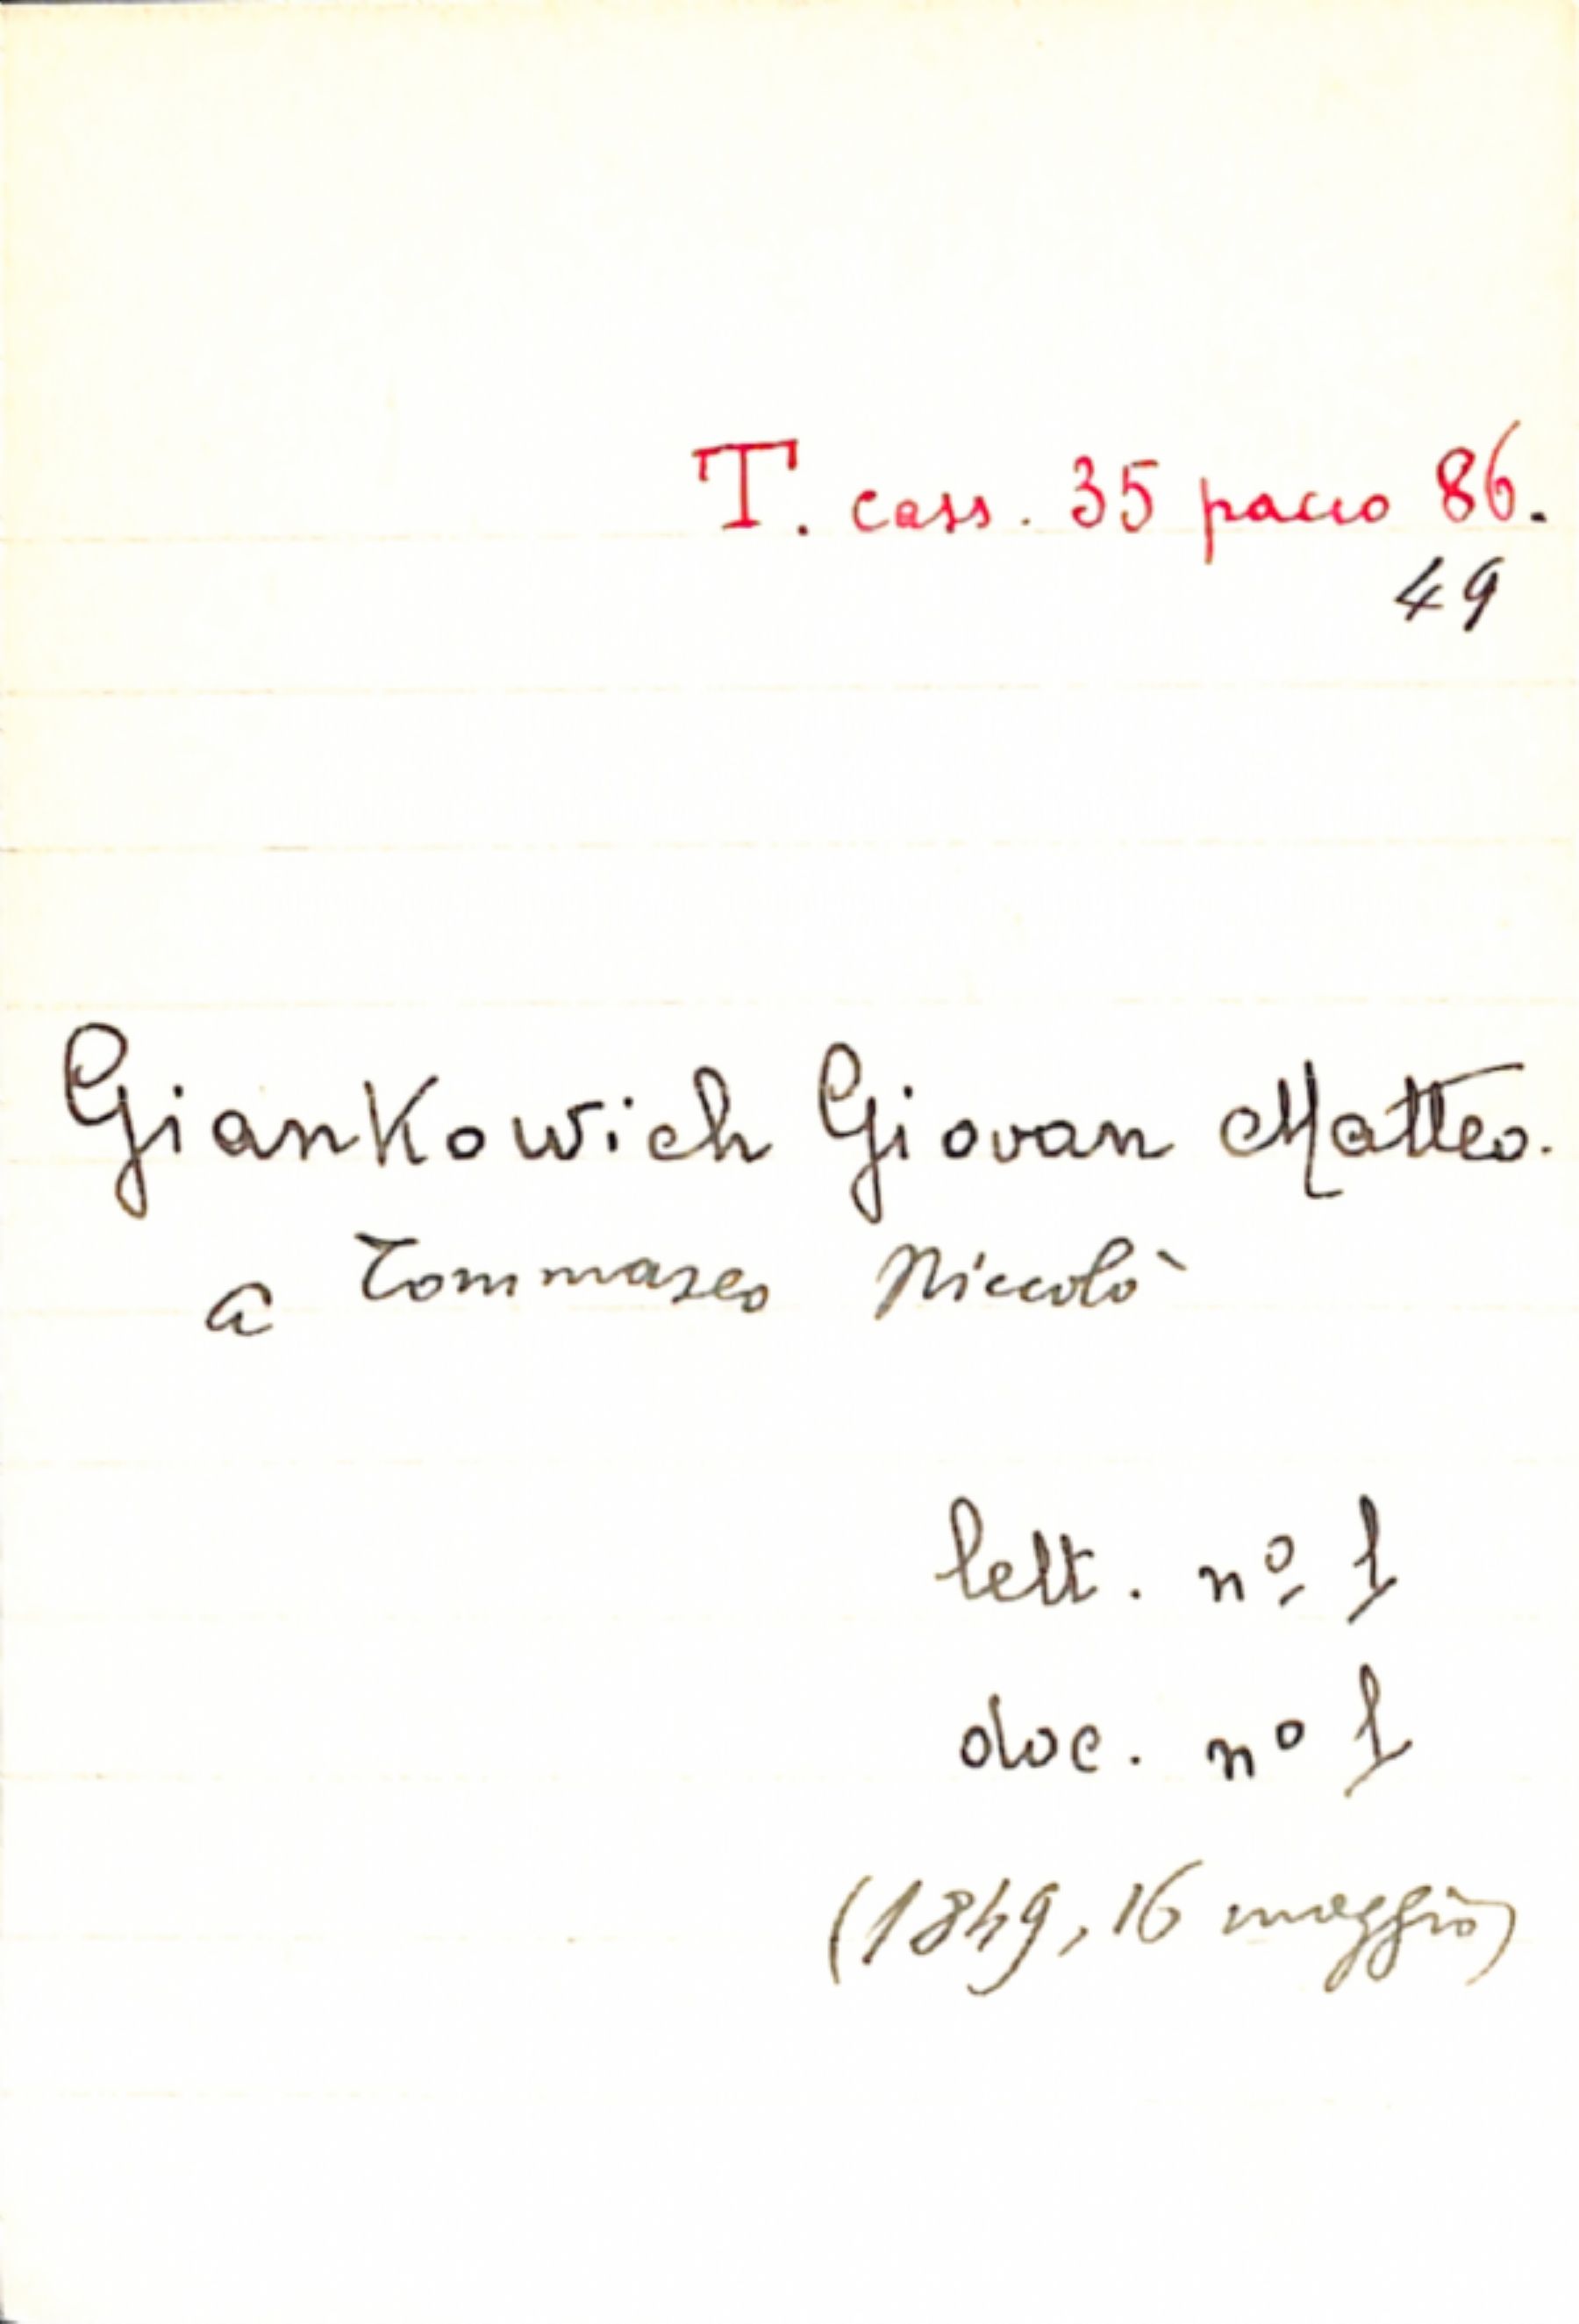 T. cass. 35 pacco 86.
49
Giankowich Giovan Matteo.
a Tommaseo Niccolò
lett. nº 1
doc. nº 1
(1849, 16 maggio)